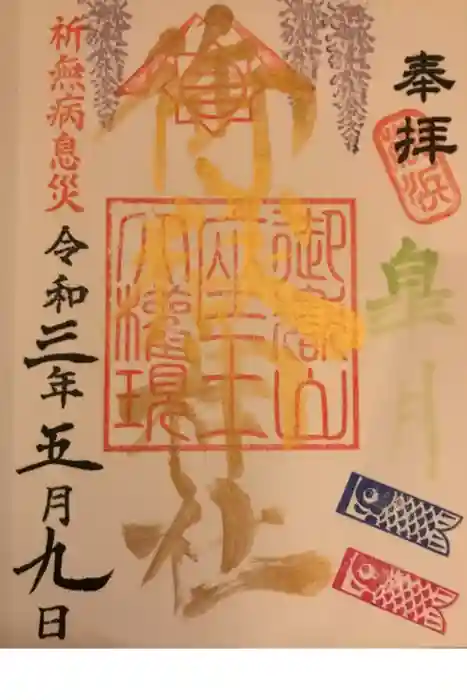 奉拝
皐月
御嶽神社
御嶽山
座王
大權現
祈無病息災
令和三年五月九日